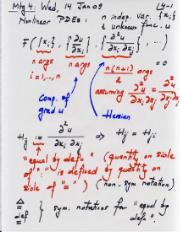 Mtg 4: Wed, 14 Jan 09 L4-1
Nonlinear PDEs: n indep. var. {x_i}
& unknown func. u
F({x_i}, {∂u/∂x_i}, {∂²u/∂x_i ∂x_j})
n args n args n(n+1)/2 args
i=1,...,n
assuming ∂²u/∂x_i∂x_j = ∂²u/∂x_j∂x_i
Comp. of grad u
Hessian
H_ij := ∂²u/∂x_i ∂x_j ⇒ H_ij = H_ji
"equal by defn" (quantity on side
of ":" is defined by quantity on
side of "=") (non. sym notation)
≜
def= } sym. notations for "equal by
defn".